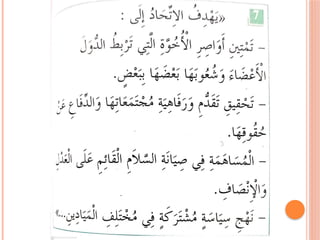 7 «يَهْدِفُ الِاتِّحَادُ إِلَى :
- تَمْتِينِ أَوَاصِرِ الْأُخُوَّةِ الَّتِي تَرْبِطُ الدُّوَلَ
الْأَعْضَاءَ وَشُعُوبَهَا بَعْضَهَا بِبَعْضٍ.
- تَحْقِيقِ تَقَدُّمِ وَرَفَاهِيَةِ مُجْتَمَعَاتِهَا وَالدِّفَاعِ عَنْ
حُقُوقِهَا.
- الْمُسَاهَمَةِ فِي صِيَانَةِ السَّلَامِ الْقَائِمِ عَلَى الْعَدْلِ
وَالْإِنْصَافِ.
- نَهْجِ سِيَاسَةٍ مُشْتَرَكَةٍ فِي مُخْتَلِفِ الْمَيَادِينِ...»